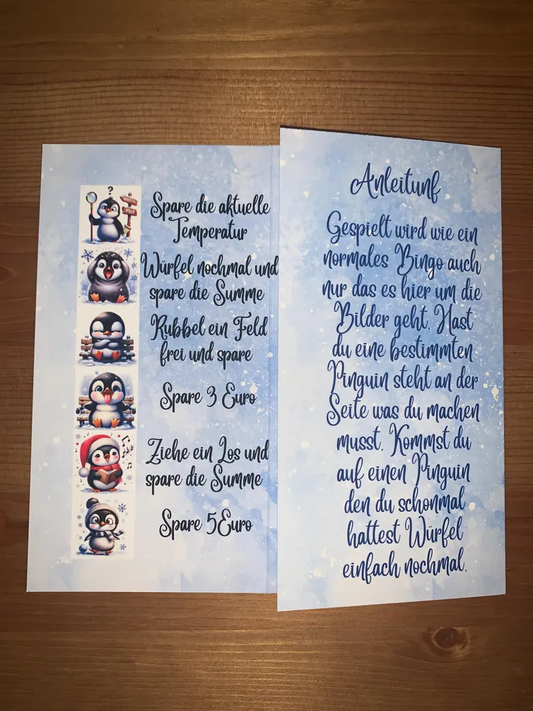 Spare die aktuelle
Temperatur
Würfel nochmal und
spare die Summe
Rubbel ein Feld
frei und spare
Spare 3 Euro
Ziehe ein Los und
spare die Summe
Spare 5Euro
Anleitunf
Gespielt wird wie ein
normales Bingo auch
nur das es hier um die
Bilder geht. Hast
du eine bestimmten
Pinguin steht an der
Seite was du machen
musst. Kommst du
auf einen Pinguin
den du schonmal
hattest Würfel
einfach nochmal.